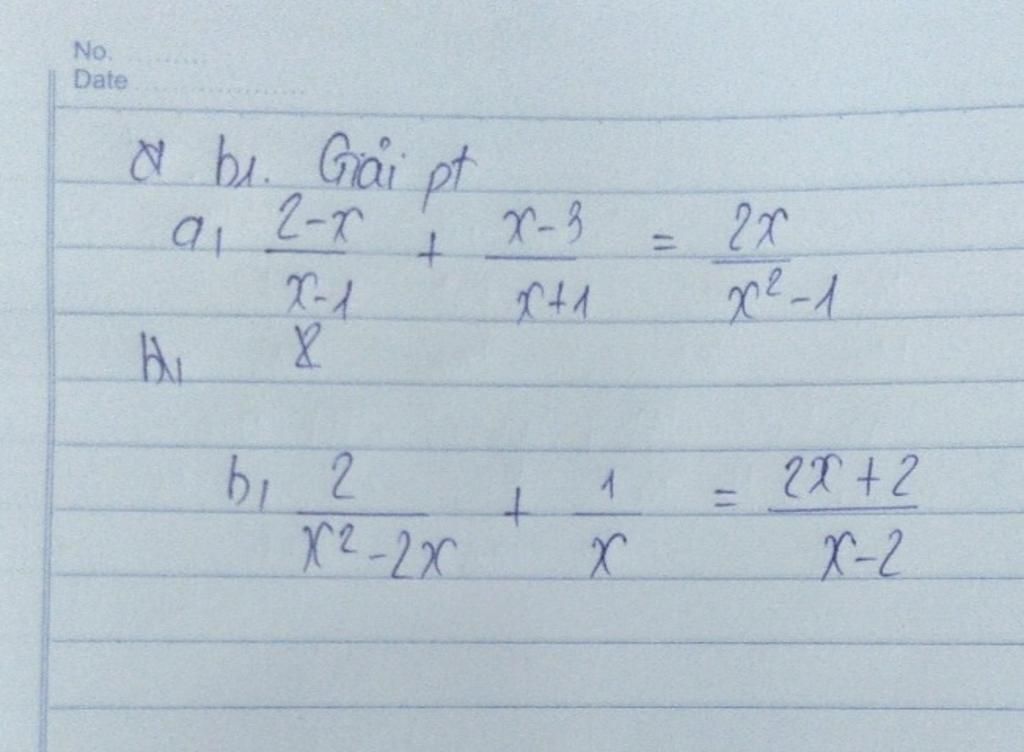 No. ..........
Date .....................
b1. Giải pt
a, \frac{2-x}{x-1} + \frac{x-3}{x+1} = \frac{2x}{x^2-1}
b, \frac{2}{x^2-2x} + \frac{1}{x} = \frac{2x+2}{x-2}